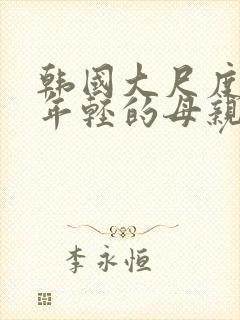 韩國大尺度
年轻的母親
李永恒